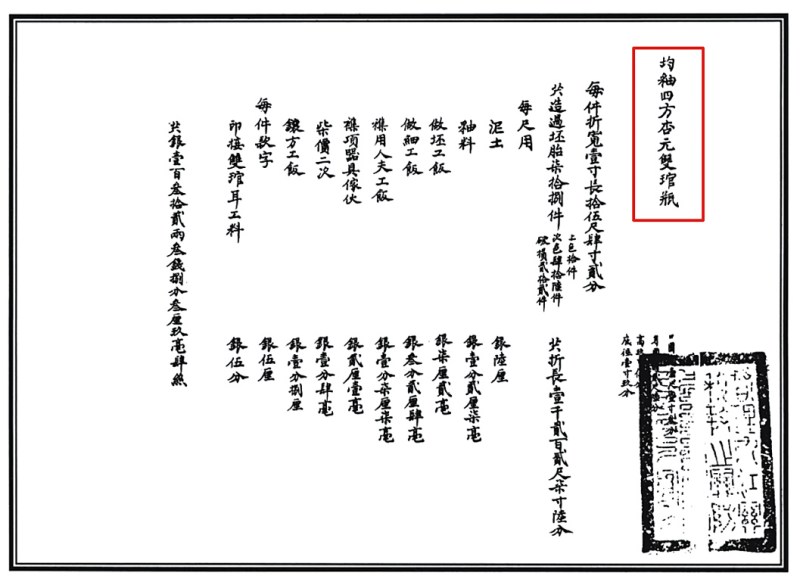 均釉四方杏元雙琯瓶
底徑壹寸玖分
每件折寬壹寸長拾伍尺肆寸貳分
共造過坯胎柒拾捌件 上色拾件
次色肆拾陸件
破損貳拾貳件
共折長壹千貳百貳尺柒寸陸分
每尺用
泥土 銀陸厘
釉料 銀壹分貳厘柒毫
做坯工飯 銀柒厘貳毫
做細工飯 銀叁分貳厘肆毫
襍用人夫工飯 銀壹分柒厘柒毫
襍項器具傢伙 銀貳厘壹毫
柴價二次 銀壹分肆毫
鑲方工飯 銀壹分捌厘
每件款字 銀伍厘
印接雙琯耳工料 銀伍分
共銀壹百叁拾貳兩叁錢捌分叁厘玖毫肆絲